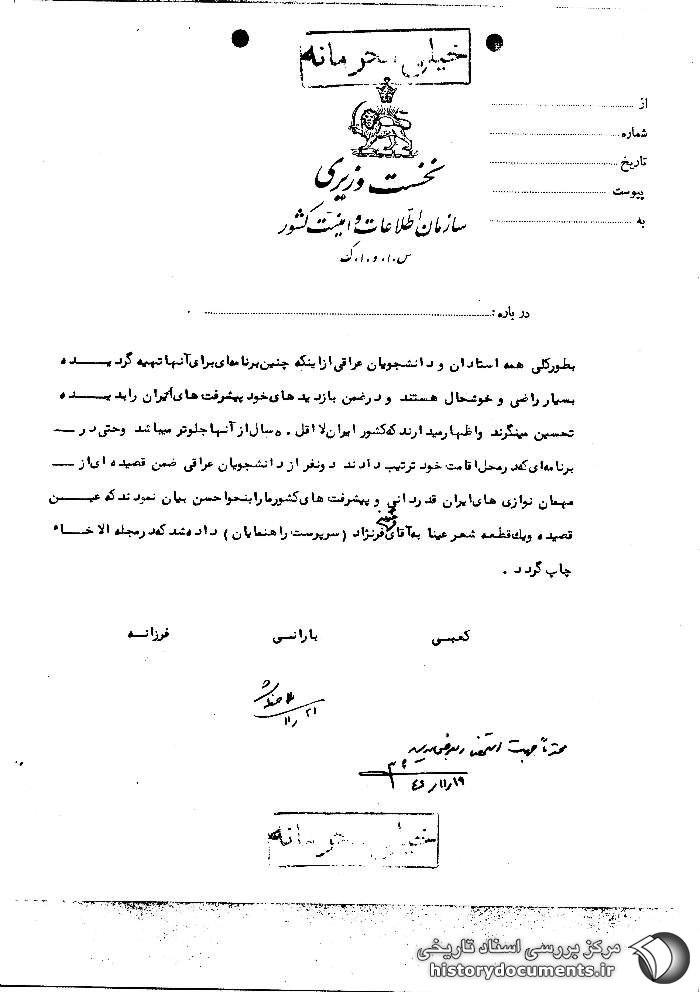 خیلی محرمانه
از
شماره
تاریخ
پیوست
به
نخست وزیری
سازمان اطلاعات و امنیت کشور
س.ا.و.ا.ک
درباره:
بطورکلی همه استادان و دانشجویان عراقی ازاینکه چنین برنامه‌ای برای آنها تهیه گردیده
بسیار راضی و خوشحال هستند و درضمن بازدید های خود پیشرفت های ایران را بدیده
تحسین مینگرند واظهارمیدارند که کشور ایران لااقل ۵۰ سال از آنها جلوتر میباشد وحتی در
برنامه‌ای که درمحل اقامت خود ترتیب دادند دونفر از دانشجویان عراقی ضمن قصیده ای از
مهمان نوازی های ایران قدردانی و پیشرفت های کشورما را بنحو احسن بیان نمودند که عین
قصیده ویک قطعه شعر عینا به آقای فرنژاد (سرپرست راهنمایان) داده شد که درمجله الاخاء
چاپ گردد.
کعبی بارانی فرزانه
ملاحظه شد
۱۱/۲۱
جهت
۴۶/۱۱/۱۹
خیلی محرمانه
مرکز بررسی اسناد تاریخی
historydocuments.ir